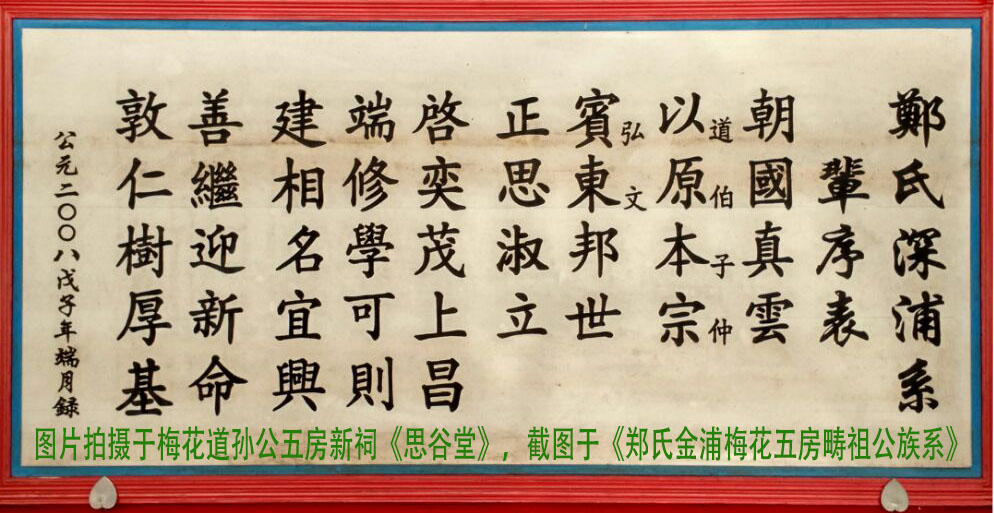 鄭氏深浦系
輩序表
朝國真雲
道伯子仲
以原本宗
弘文
賓東邦世
正思淑立
啓奕茂上昌
端修學可則
建相名宜興
善繼迎新命
敦仁樹厚基
公元二〇〇八戊子年端月録
图片拍摄于梅花道孙公五房新祠《思谷堂》，截图于《郑氏金浦梅花五房畴祖公族系》